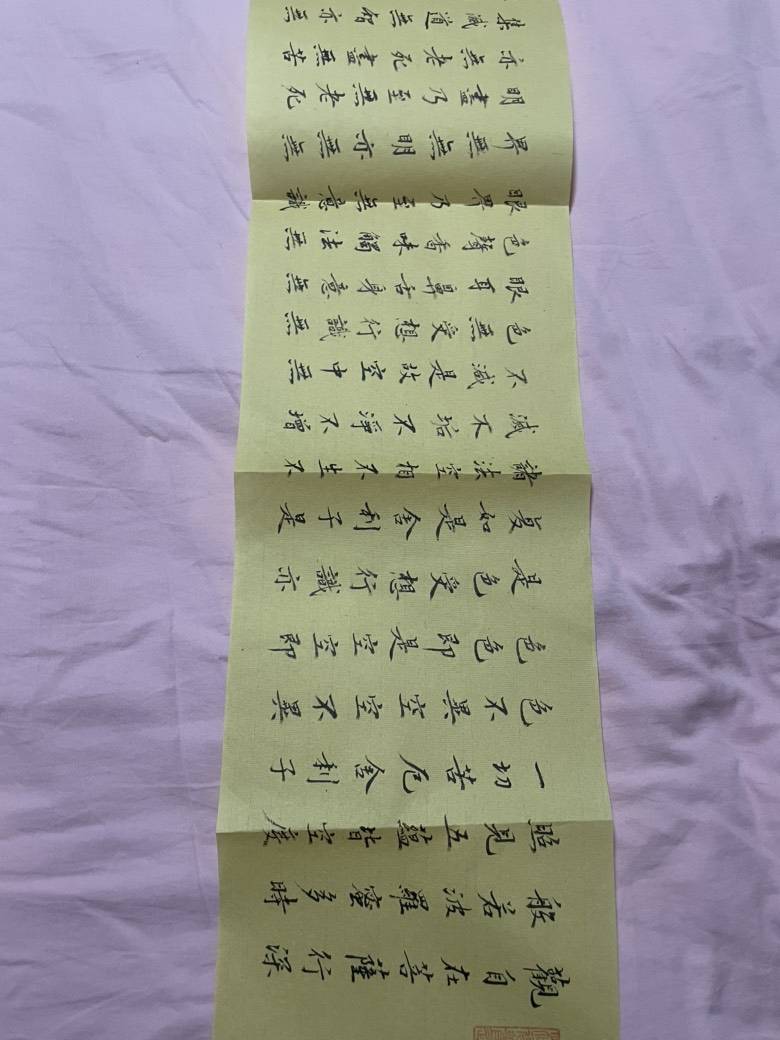 觀自在菩薩行深
般若波羅蜜多時
照見五蘊皆空度
一切苦厄舍利子
色不異空空不異
色色即是空空即
是色受想行識亦
復如是舍利子是
諸法空相不生不
滅不垢不淨不增
不減是故空中無
色無受想行識無
眼耳鼻舌身意無
色聲香味觸法無
眼界乃至無意識
界無無明亦無無
明盡乃至無老死
亦無老死盡無苦
集滅道無智亦無